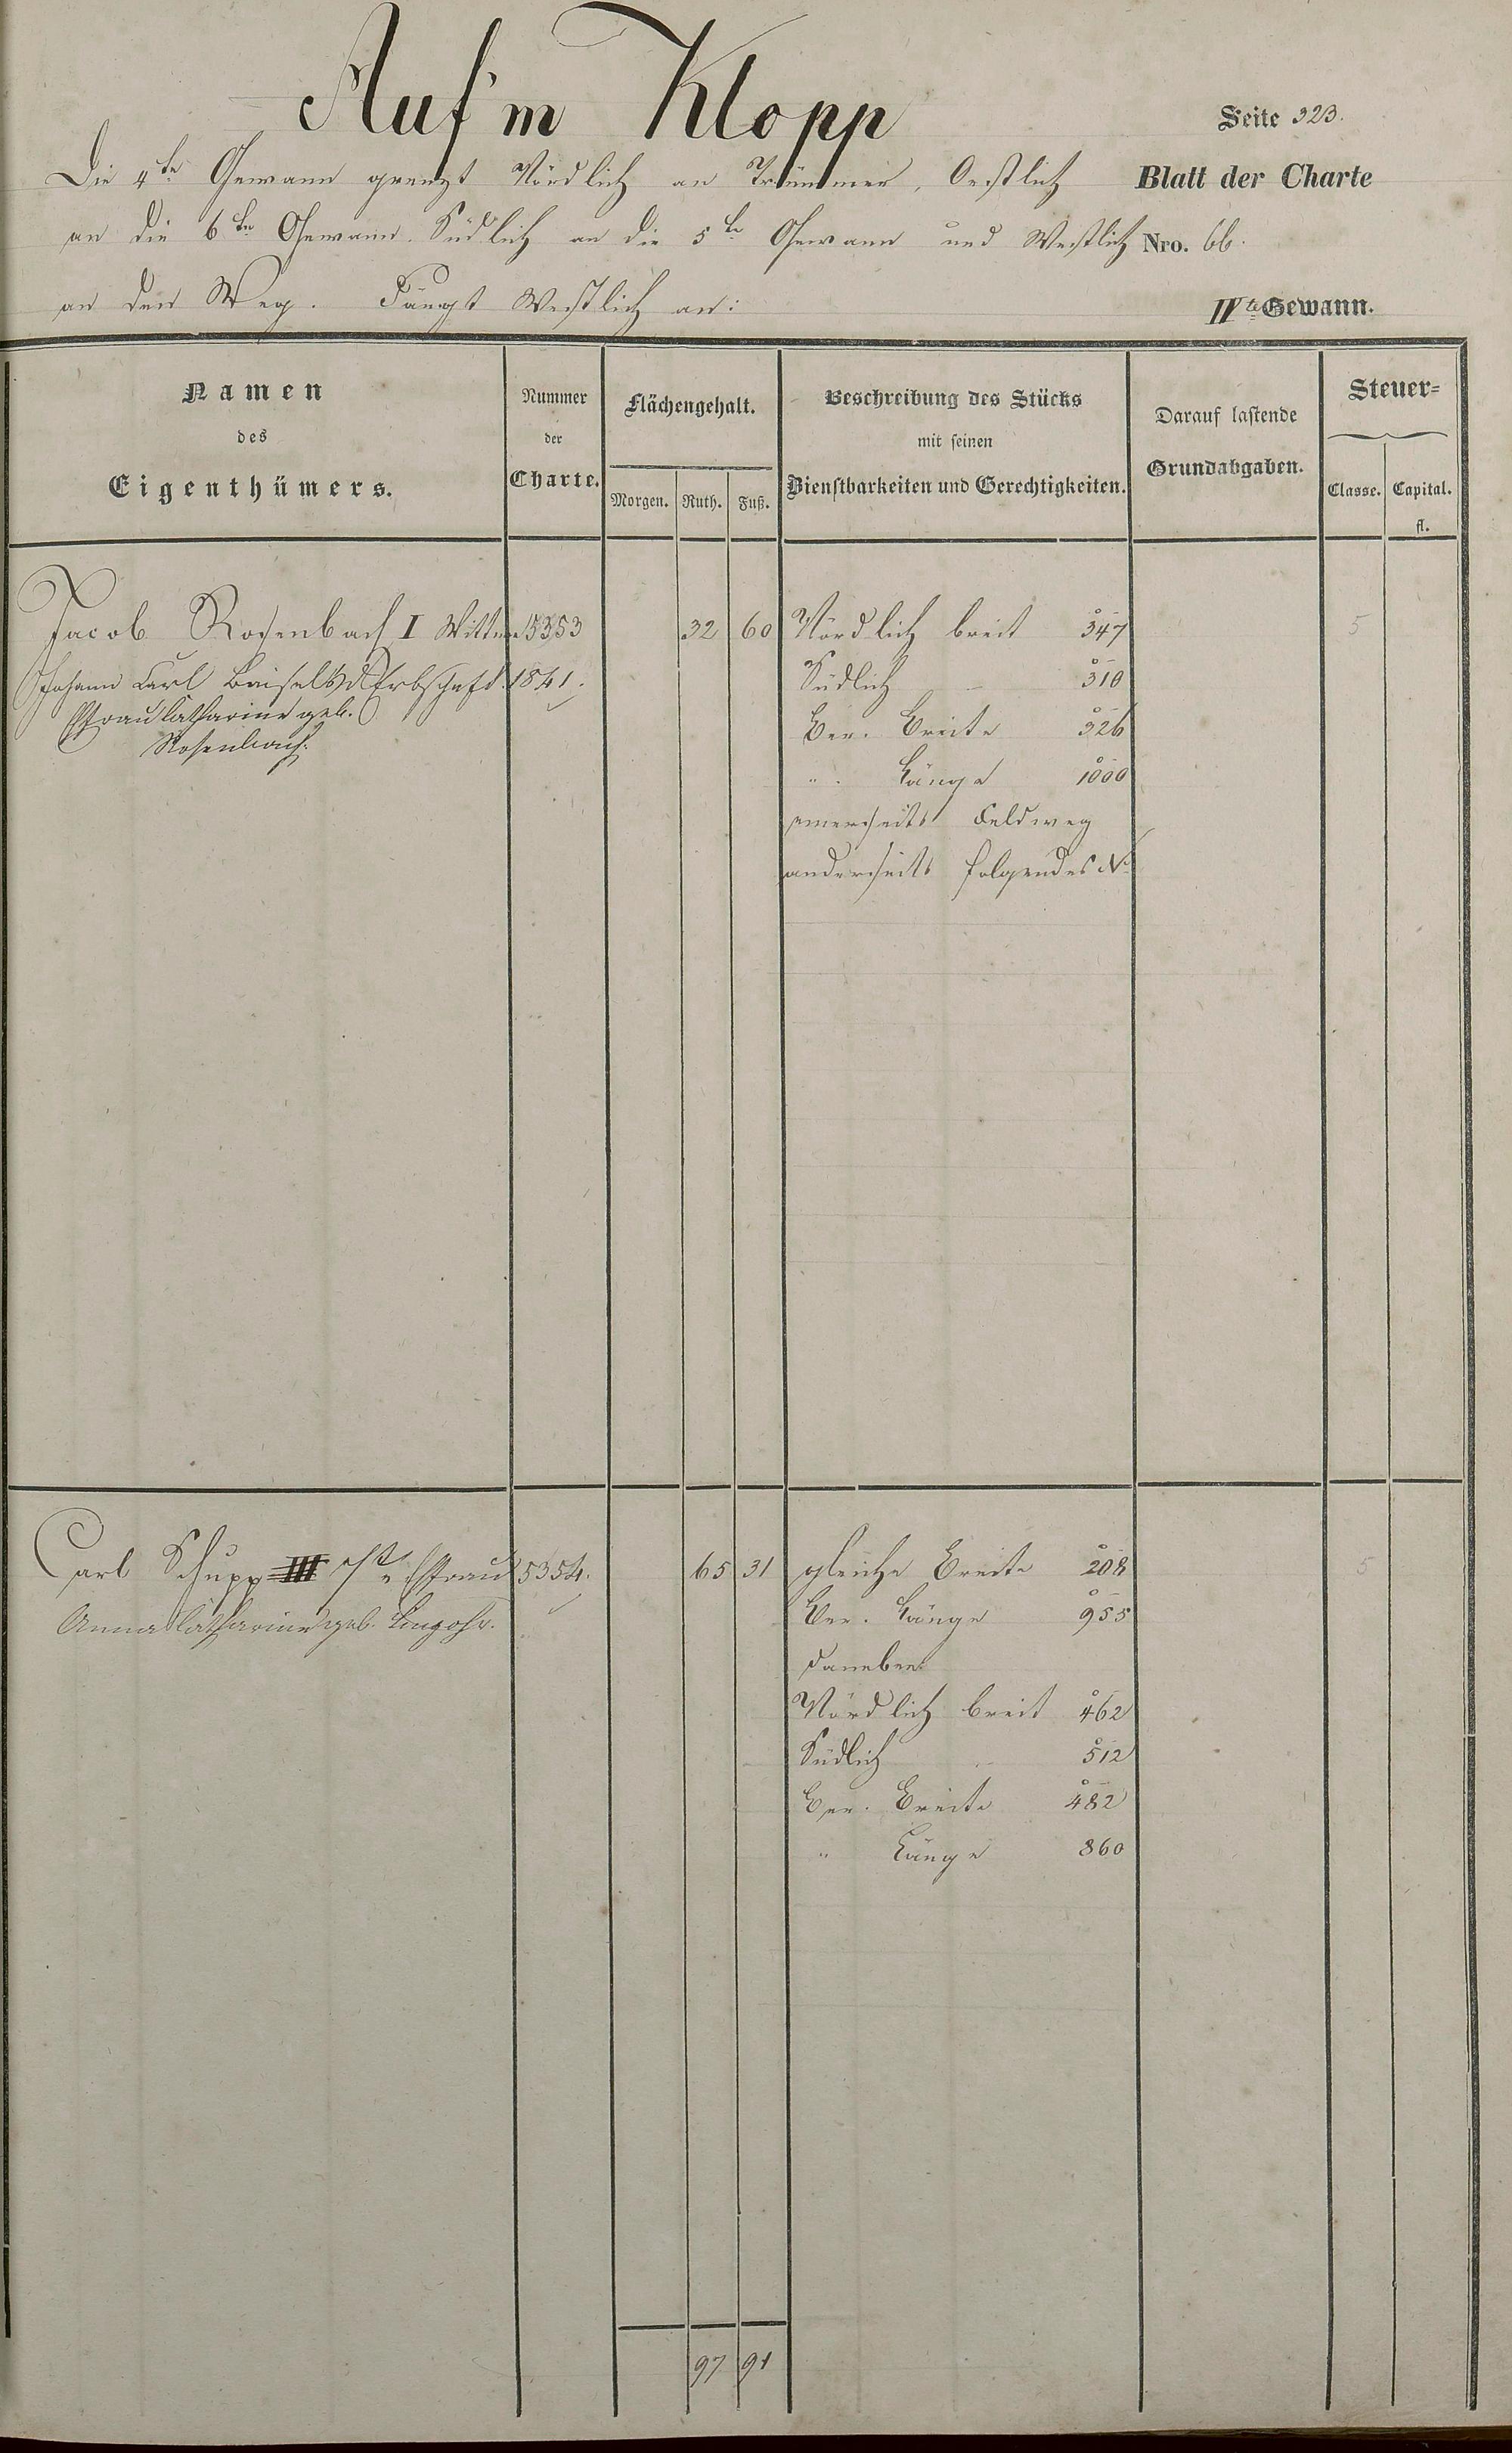 Auf'm Klopp
Seite 323.
Die 4te Gewann grenzt Nördlich an Trümmer, Oestlich
Blatt der Charte
an die 6te Gewann. Südlich an die 5te Gewann und Westlich
Nro. 66.
an den Weg. Fängt Westlich an:
IVte Gewann.
Namen
des
Eigenthümers.
Nummer
der
Charte.
Flächengehalt.
Morgen. Ruth. Fuß.
Beschreibung des Stücks
mit seinen
Dienstbarkeiten und Gerechtigkeiten.
Darauf lastende
Grundabgaben.
Steuer=
Classe. Capital.
fl.
Jacob Rosenbach I Wittwe 5353 32 60 Nördlich breit 347 5
Johann Carl Erbschaft. 1841. Südlich 310
Ehefrau Catharine geb. Ber. Breite 326
Rosenbach.
" Länge 1000
einerseits Feldweg
anderseits folgendes No
Carl Schupp III Ehefrau 5354. 65 31 gleiche Breite 208 5
Anna Catharine geb. Lingohr. Ber. Länge 955
daneben
Nördlich breit 462
Südlich " 512
Ber. Breite 482
" Länge 860
97 91